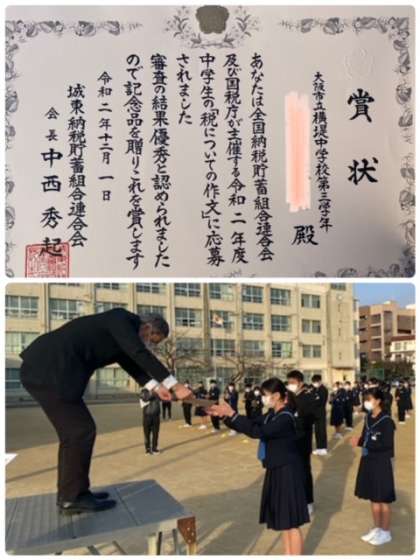 賞状
大阪市立横堤中学校第三学年
殿
あなたは全国納税貯蓄組合連合会
及び国税庁が主催する令和二年度
中学生の「税についての作文」に応募
されました
審査の結果優秀と認められました
ので記念品を贈りこれを賞します
令和二年十二月一日
城東納税貯蓄組合連合会
会長 中西秀起